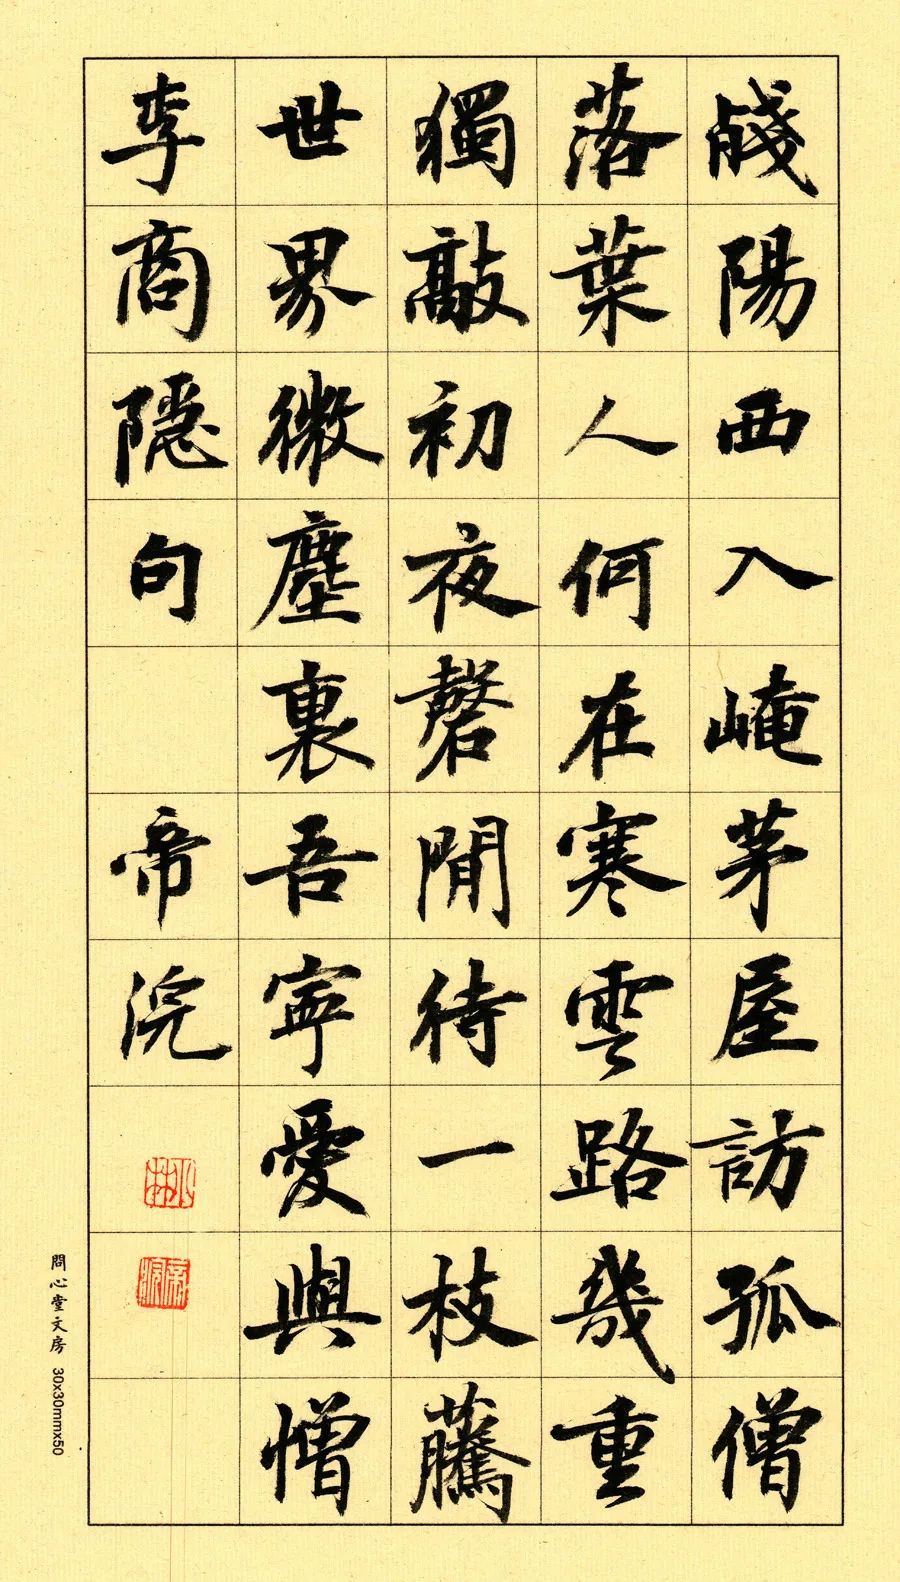 殘陽西入崦茅屋訪孤僧
落葉人何在寒雲路幾重
獨敲初夜磬閒待一枝藤
世界微塵裏吾寧愛與憎
李商隱句 帝浣
問心堂文房 30x30mmx50